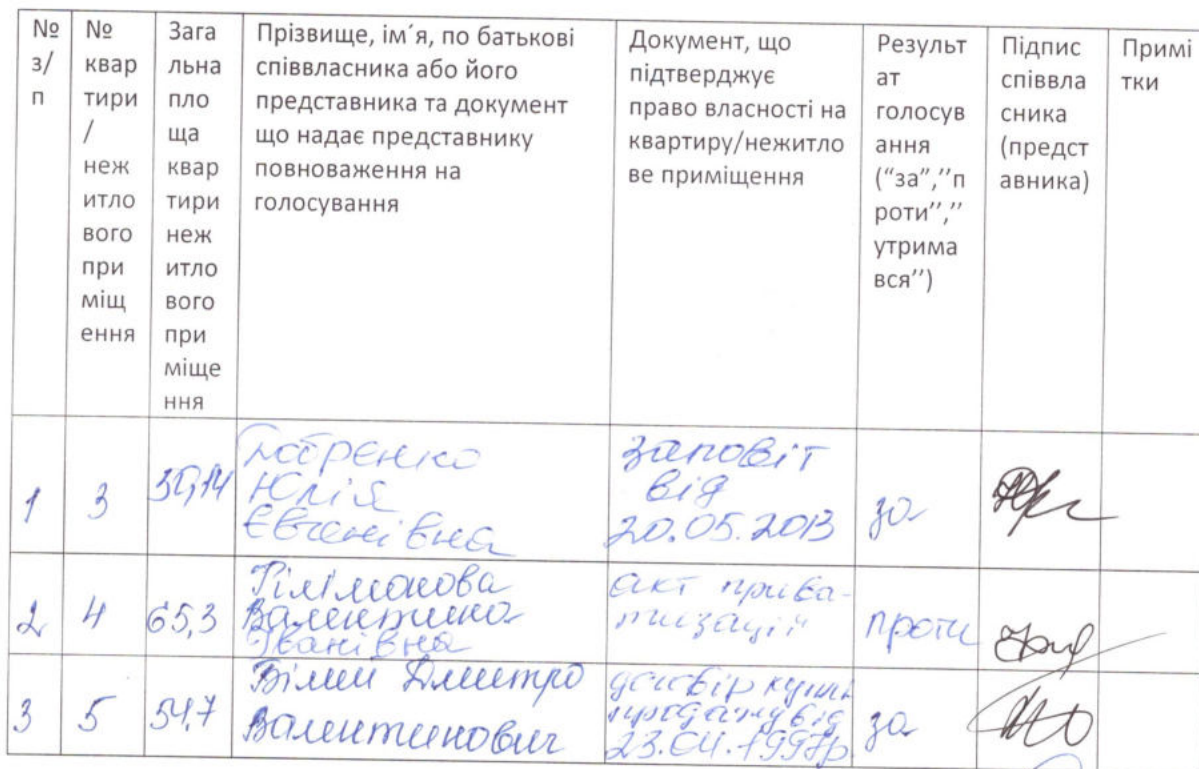 № з/п
№ квартири/нежитлового приміщення
Загальна площа квартири нежитлового приміщення
Прізвище, ім´я, по батькові співвласника або його представника та документ що надає представнику повноваження на голосування
Документ, що підтверджує право власності на квартиру/нежитлове приміщення
Результат голосування (“за”,’’проти’’,’’утримався’’)
Підпис співвласника (представника)
Примітки
1
3
Юлія
Євгенівна
заповіт
від
20.05.2013
за
2
4
65,3
Валентина
Іванівна
акт прива-
тизації
проти
3
5
54,7
Білий Дмитро
Валентинович
договір купівлі
продажу від
23.04.1997р
за